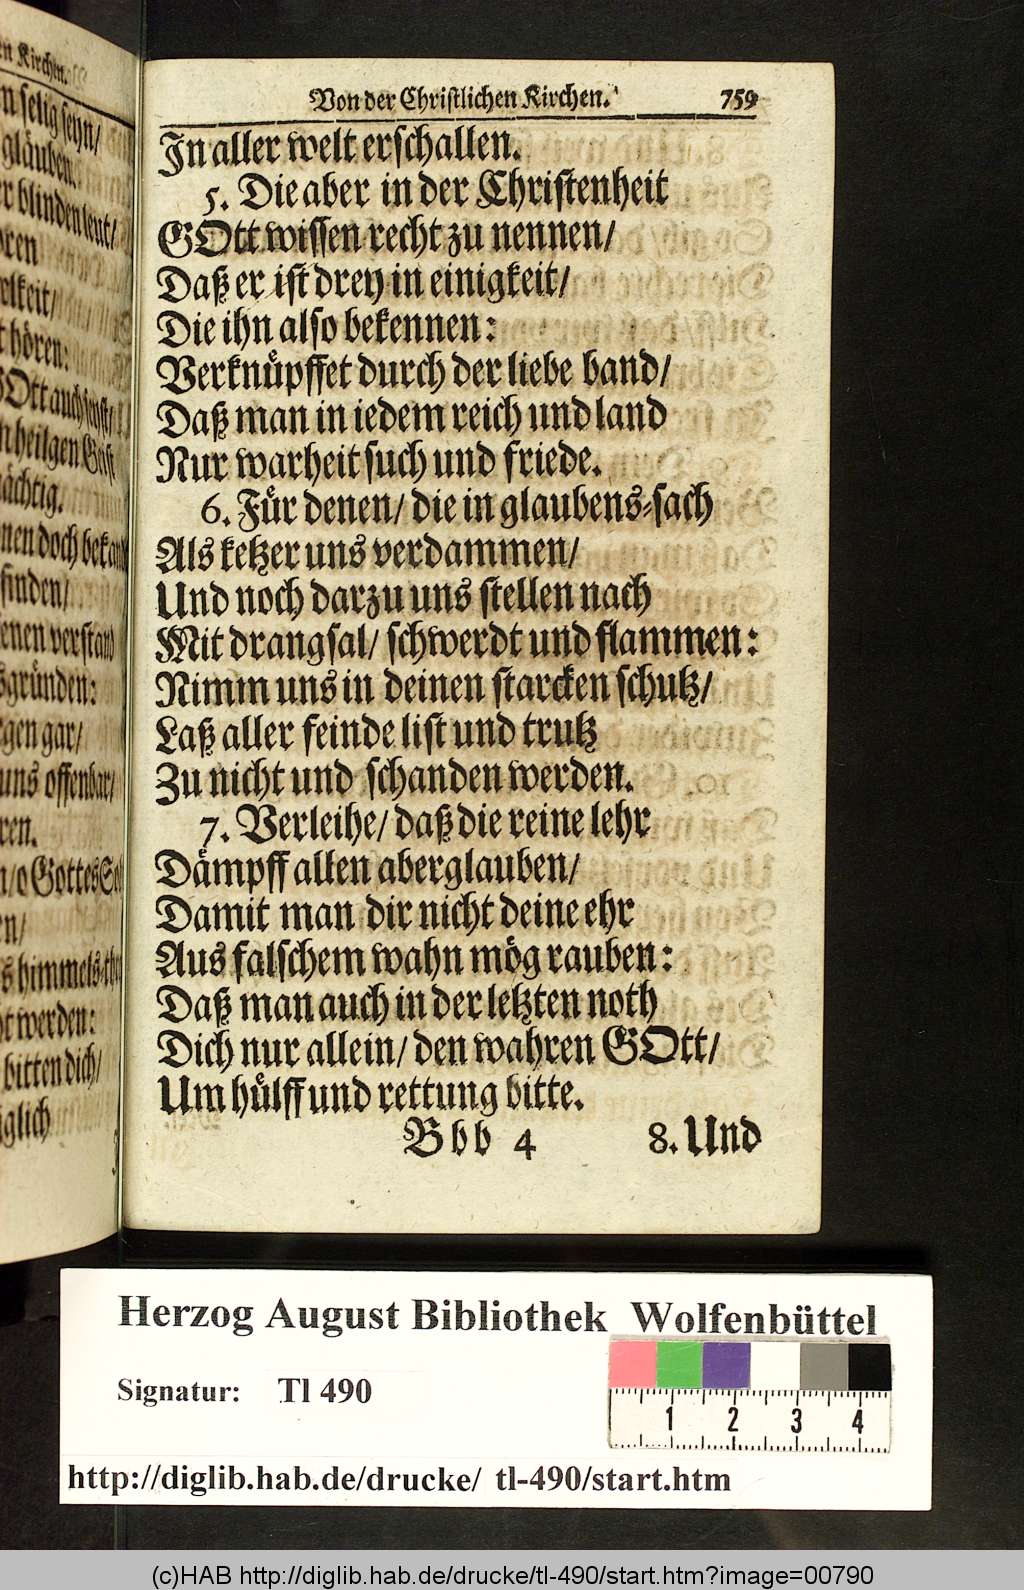 en Kirchen.
n selig seyn/
gläuben.
r blinden leut/
ören
rkeit/
t hören:
GOtt auch
n heilgen Geist
ächtig.
nen doch bekant
finden/
enen verstand
gründen:
gen gar/
uns offenbar/
ren.
n/ o Gottes
en/
s himmels
t werden:
bitten dich/
glich
Von der Christlichen Kirchen. 759
In aller welt erschallen.
5. Die aber in der Christenheit
GOtt wissen recht zu nennen/
Daß er ist drey in einigkeit/
Die ihn also bekennen:
Verknüpffet durch der liebe band/
Daß man in iedem reich und land
Nur warheit such und friede.
6. Für denen/ die in glaubens-sach
Als ketzer uns verdammen/
Und noch darzu uns stellen nach
Mit drangsal/ schwerdt und flammen:
Nimm uns in deinen starcken schutz/
Laß aller feinde list und trutz
Zu nicht und schanden werden.
7. Verleihe/ daß die reine lehr
Dämpff allen aberglauben/
Damit man dir nicht deine ehr
Aus falschem wahn mög rauben:
Daß man auch in der letzten noth
Dich nur allein/ den wahren GOtt/
Um hülff und rettung bitte.
Bbb 4 8. Und
Herzog August Bibliothek Wolfenbüttel
Signatur: Tl 490
1 2 3 4
http://diglib.hab.de/drucke/ tl-490/start.htm
(c)HAB http://diglib.hab.de/drucke/tl-490/start.htm?image=00790